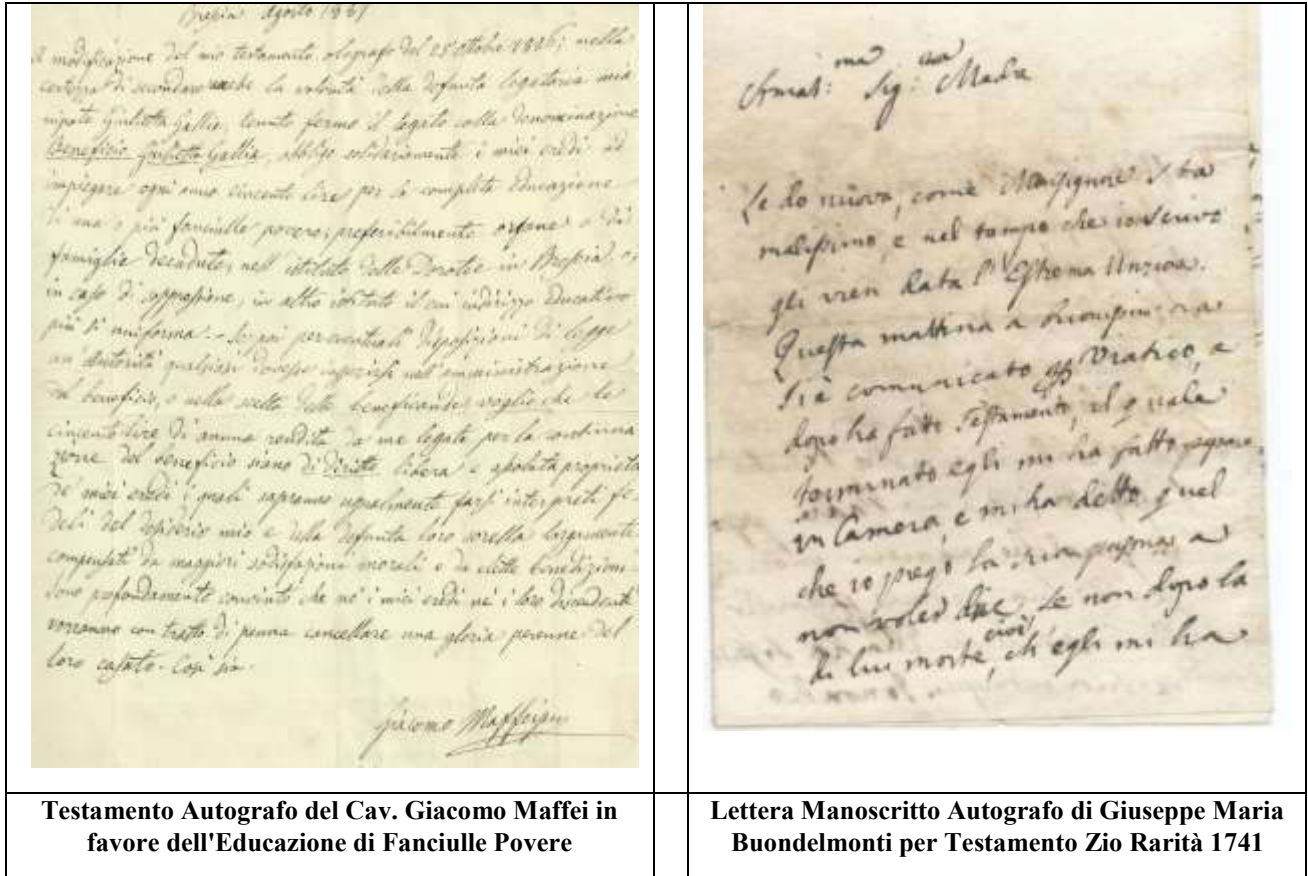 Brescia Agosto 18
A modificazione del mio testamento olografo del 25 Ottobre 1886; nella
certezza di secondare anche la volontà della defunta legataria mia
nipote Giulietta Gallia, tenuto fermo il legato colla denominazione
Beneficio Giulietta Gallia, obbligo solidariamente i miei eredi ad
impiegare ogni anno cincento lire per la completa educazione
di una o più fanciulle povere, preferibilmente orfane o di
famiglie decadute, nell'istituto delle Dorotee in Brescia o,
in caso di soppressione, in altro istituto il cui indirizzo educativo
più si uniforma. - Se poi per eventuali disposizioni di legge
un'Autorità qualsiasi dovesse ingerirsi nell'amministrazione
del beneficio, o nella scelta delle beneficande, voglio che le
cincento lire di annua rendita da me legate per la continua
zione del beneficio siano di diritto libera e assoluta proprietà
de' miei eredi i quali sapranno ugualmente farsi interpreti fe
deli del desiderio mio e della defunta loro sorella largamente
compensati da maggiori sodisfazioni morali e da elette benedizioni.
Sono profondamente convinto che nè i miei eredi nè i loro discendenti
vorranno con tratto di penna cancellare una gloria perenne del
loro casato. Così sia.
Giacomo Maffei
Testamento Autografo del Cav. Giacomo Maffei in
favore dell'Educazione di Fanciulle Povere
Amat: ma Sig: ra Madre
Le do nuova, come Monsignore sta
malissimo, e nel tempo che io scrivo
gli vien data l'Estrema Unzione.
Questa mattina a
si è comunicato Viatico, e
dopo ha fatto Testamento, il quale
terminato egli mi ha fatto
in Camera, e mi ha detto quel
che io prego la sua persona a
non voler dire, se non dopo la
di lui morte, cioè ch'egli mi ha
Lettera Manoscritto Autografo di Giuseppe Maria
Buondelmonti per Testamento Zio Rarità 1741